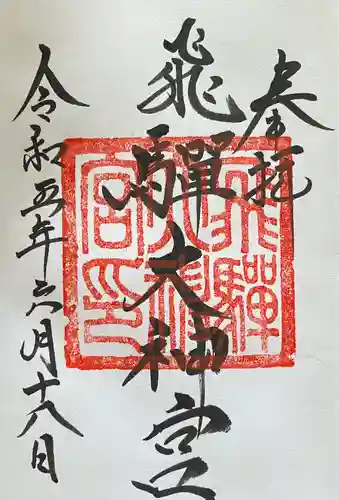 奉拝
飛騨大神宮
飛驒大神宮印
令和五年六月十八日